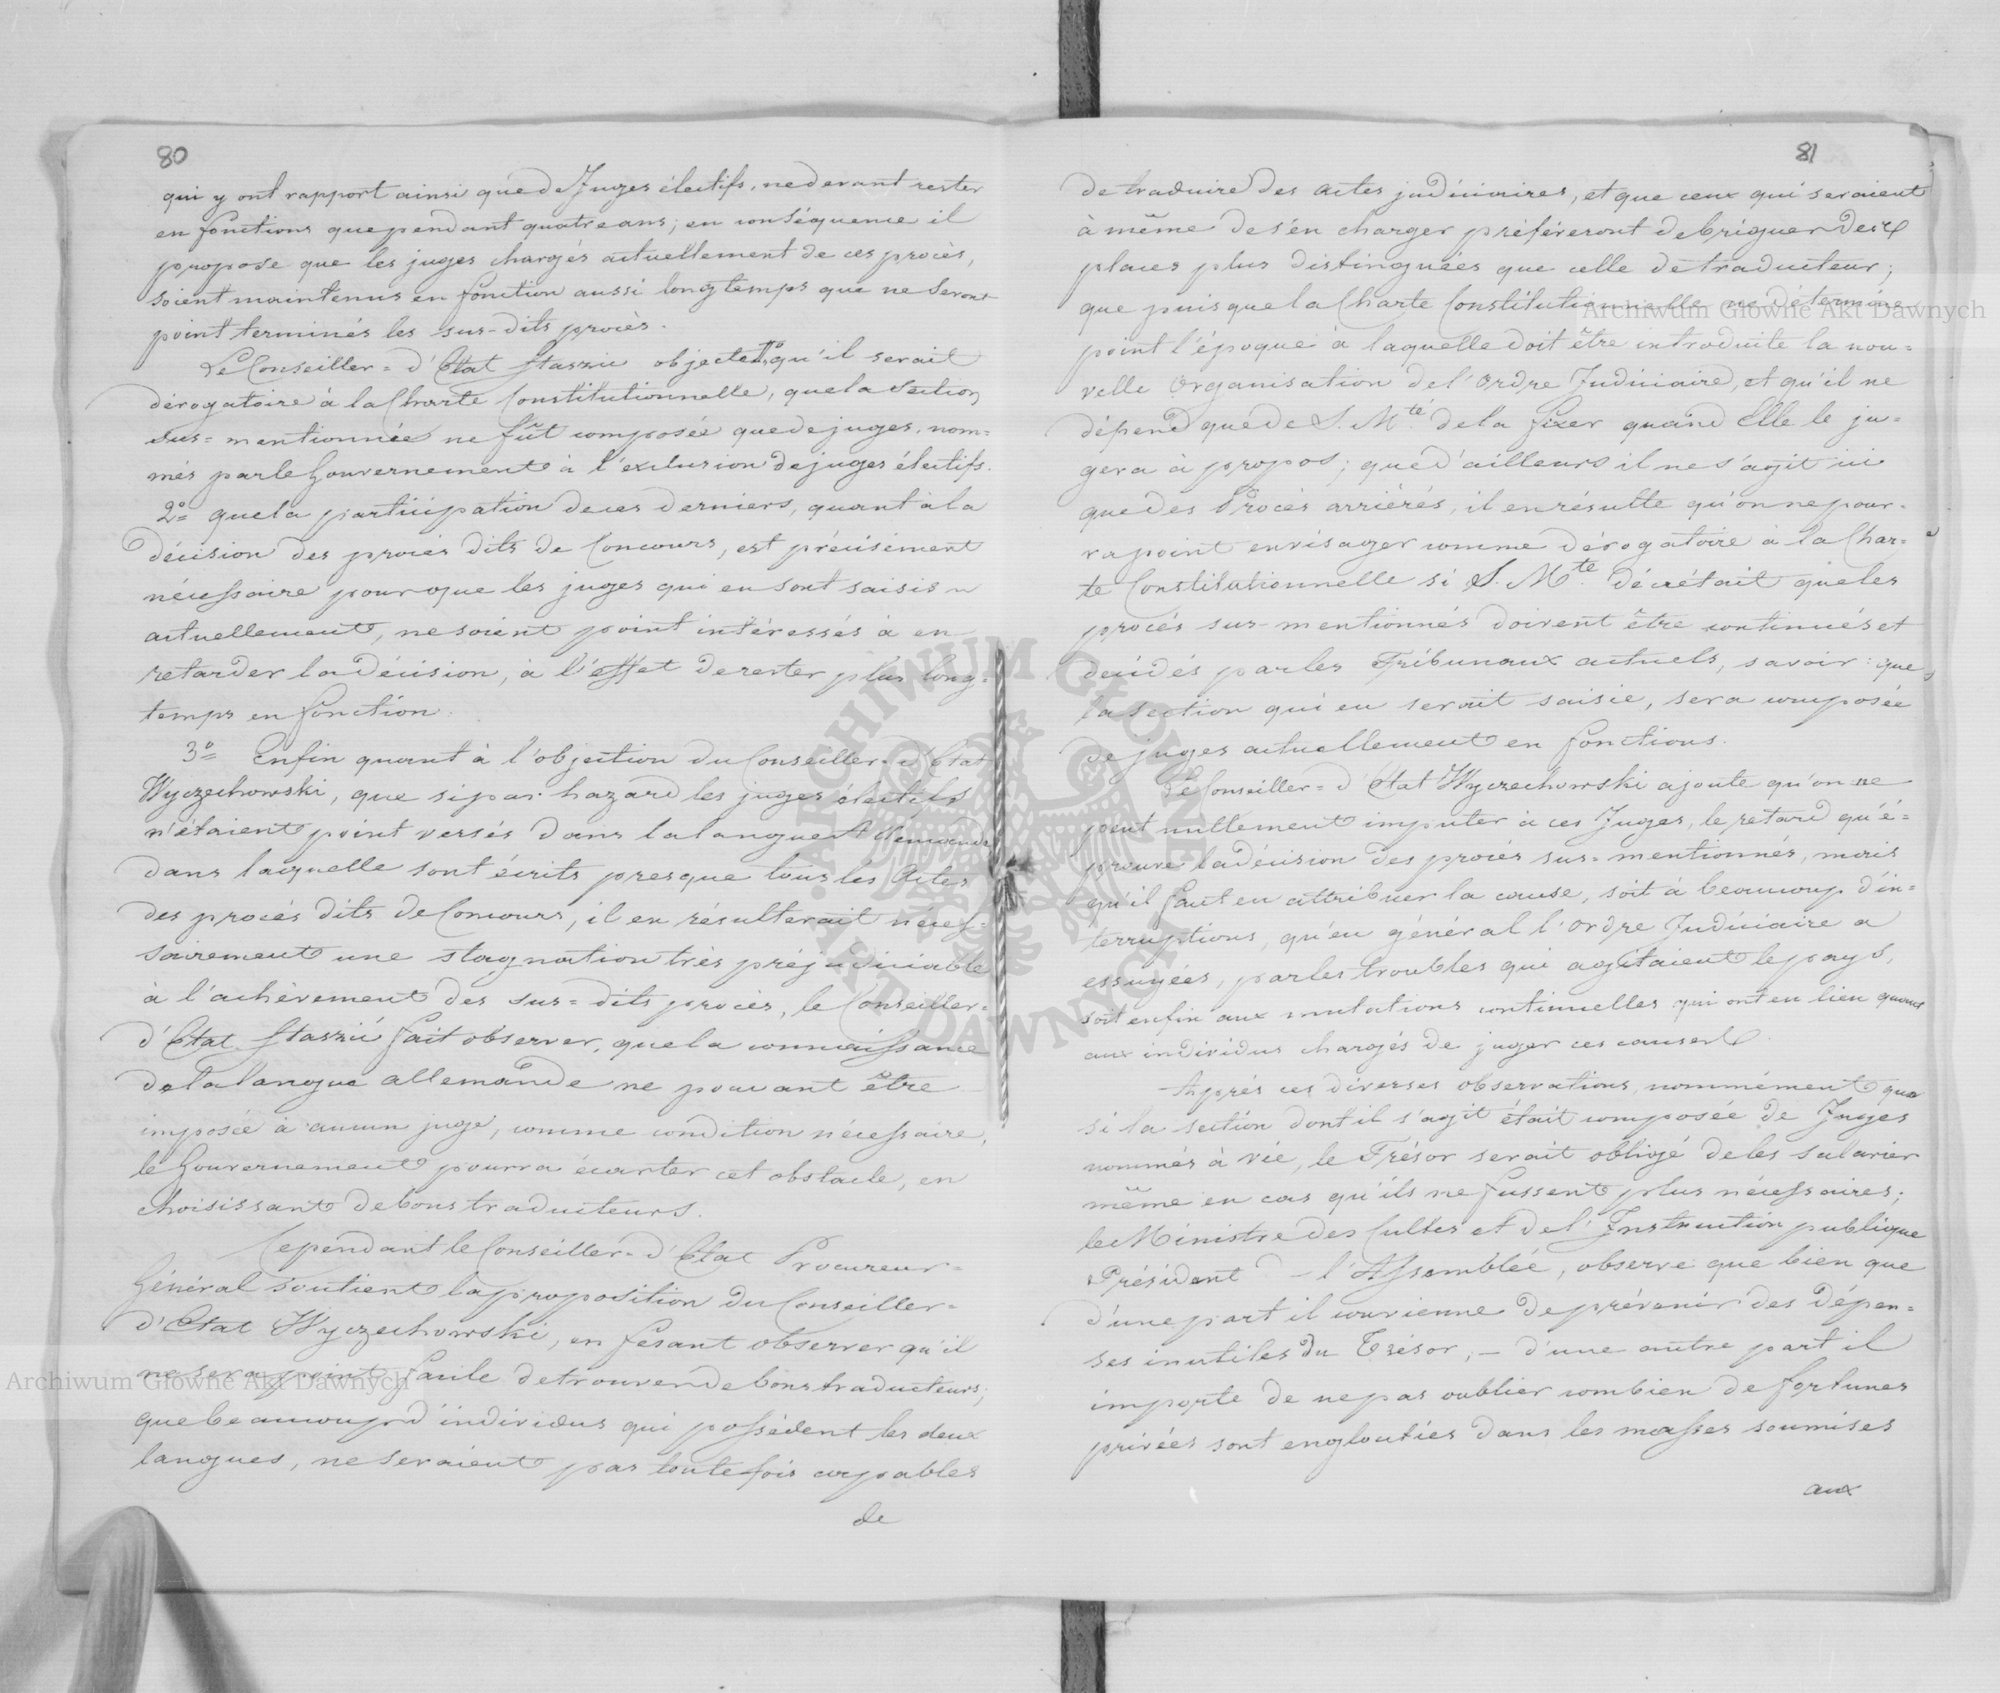 80
qui y ont rapport ainsi que de Juges électifs, ne devant rester
en fonctions que pendant quatre ans; en conséquence il
propose que les juges chargés actuellement de ces procès,
soient maintenus en fonction aussi longtemps que ne seront
point terminés les sus-dits procès.
Le Conseiller = d'Etat Staszic objecte 1º qu'il serait
dérogatoire à la Charte Constitutionnelle, que la Section
sus = mentionnée ne fût composée que de juges, nom=
més par le Gouvernement à l'exclusion de juges électifs.
2º que la participation de ces derniers, quant à la
décision des procès dits de Concours, est précisément
nécessaire pour que les juges qui en sont saisis
actuellement, ne soient point intéressés à en
retarder la décision, à l'effet de rester plus long=
temps en fonction.
3º Enfin quant à l'objection du Conseiller = d'Etat
Wyczechowski, que si par hazard les juges électifs
n'étaient point versés dans la langue Allemande
dans laquelle sont écrits presque tous les Actes
des procès dits de Concours, il en résulterait néces=
sairement une stagnation très préjudiciable
à l'achèvement des sus = dits procès, le Conseiller =
d'Etat Staszic fait observer, que la connaissance
de la langue allemande ne pouvant être
imposée à aucun juge, comme condition nécessaire,
le Gouvernement pourra écarter cet obstacle, en
choisissant de bons traducteurs.
Cependant le Conseiller = d'Etat Procureur =
Général soutient la proposition du Conseiller =
d'Etat Wyczechowski, en fesant observer qu'il
ne sera point facile de trouver de bons traducteurs;
que beaucoup d'individus qui possèdent les deux
langues, ne seraient pas toutefois capables
de
81
de traduire des actes judiciaires, et que ceux qui seraient
à même de s'en charger préféreront de briguer des
places plus distinguées que celle de traducteur;
que puisque la Charte Constitutionnelle ne détermine
point l'époque à laquelle doit être introduite la nou=
velle organisation de l'ordre Judiciaire, et qu'il ne
dépend que de S. Mté de la fixer quand Elle le ju=
gera à propos; que d'ailleurs il ne s'agit ici
que des Procès arriérés, il en résulte qu'on ne pour=
ra point envisager comme dérogatoire à la Char=
te Constitutionnelle si S. Mté décrétait que les
procès sus-mentionnés doivent être continués et
décidés par les Tribunaux actuels, savoir: que
la section qui en serait saisie, sera composée
de juges actuellement en fonctions.
Le Conseiller = d'Etat Wyczechowski ajoute qu'on ne
peut nullement imputer à ces Juges, le retard qu'é=
prouve la décision des procès sus = mentionnés, mais
qu'il faut en attribuer la cause, soit à beaucoup d'in=
terruptions, qu'en général l'ordre Judiciaire a
essuyées, par les troubles qui agitaient le pays,
soit enfin aux mutations continuelles qui ont eu lieu quant
aux individus chargés de juger ces causes.
Après ces diverses observations, nommément que
si la section dont il s'agit était composée de Juges
nommés à vie, le Trésor serait obligé de les salarier
même en cas qu'ils ne fussent plus nécessaires;
le Ministre des Cultes et de l'Instruction publique
Président l'Assemblée, observe que bien que
d'une part il convienne de prévenir des dépen=
ses inutiles du Trésor, — d'une autre part il
importe de ne pas oublier combien de fortunes
privées sont englouties dans les masses soumises
aux
Archiwum Główne Akt Dawnych
Archiwum Główne Akt Dawnych
ARCHIWUM GŁÓWNE AKT DAWNYCH